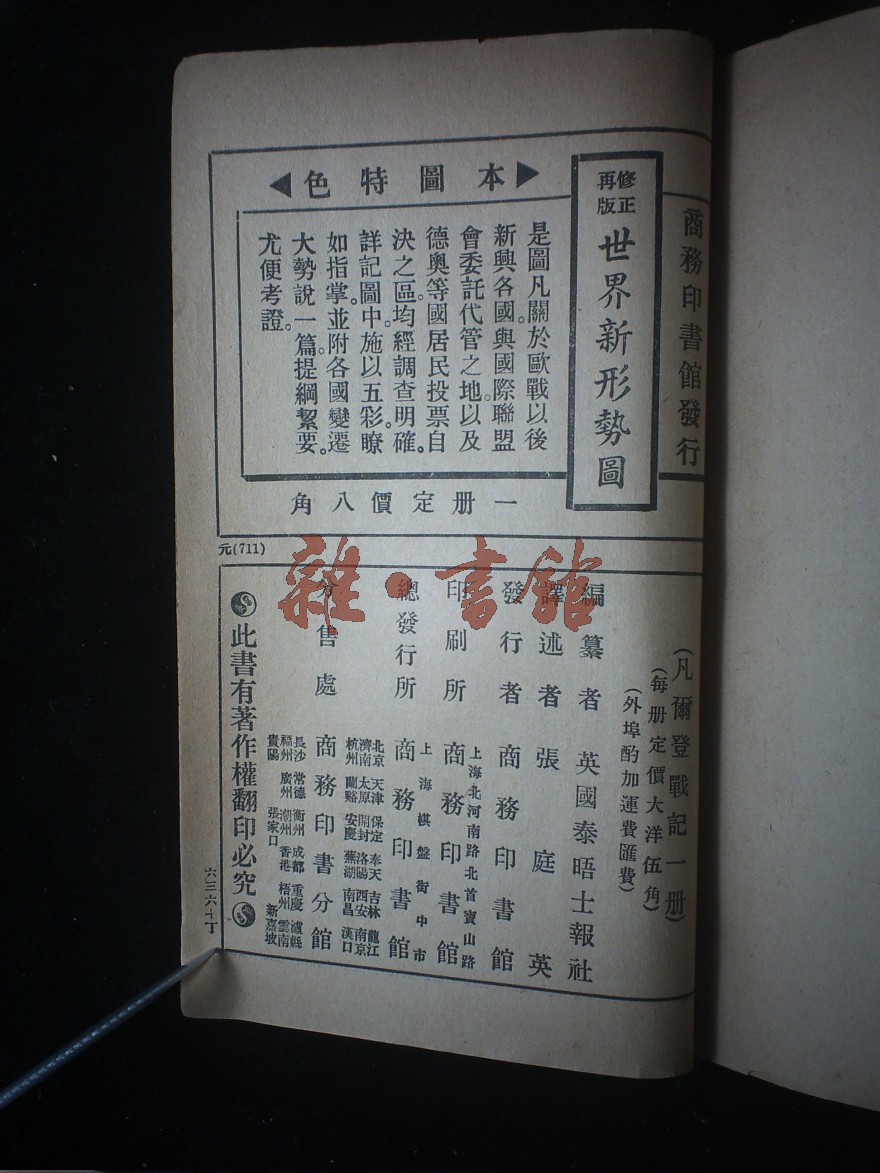 商務印書館發行
修正
再版
世界新形勢圖
本圖特色
是圖凡關於歐戰以後
新興各國與國際聯盟
會委託代管之地以及
德奧等國居民投票自
決之區均經調查明確。
詳記圖中施以五彩瞭
如指掌。並附各國變遷
大勢說一篇。提綱絜要。
尤便考證。
一册定價八角
元(711)
(凡爾登戰記一册)
(每册定價大洋伍角)
(外埠酌加運費匯費)
編纂者 英國泰晤士報社
譯述者 張庭英
發行者 商務印書館
印刷所 上海北河南路北首寶山路 商務印書館
總發行所 上海棋盤街中市 商務印書館
分售處 商務印書分館
北京 天津 保定 奉天 吉林 龍江
濟南 太原 開封 洛陽 西安 南京
杭州 蘭谿 安慶 蕪湖 南昌 漢口
長沙 常德 衡州 成都 重慶 瀘縣
福州 廣州 潮州 香港 梧州 雲南
貴陽 張家口 新嘉坡
此書有著作權翻印必究
雜·書館